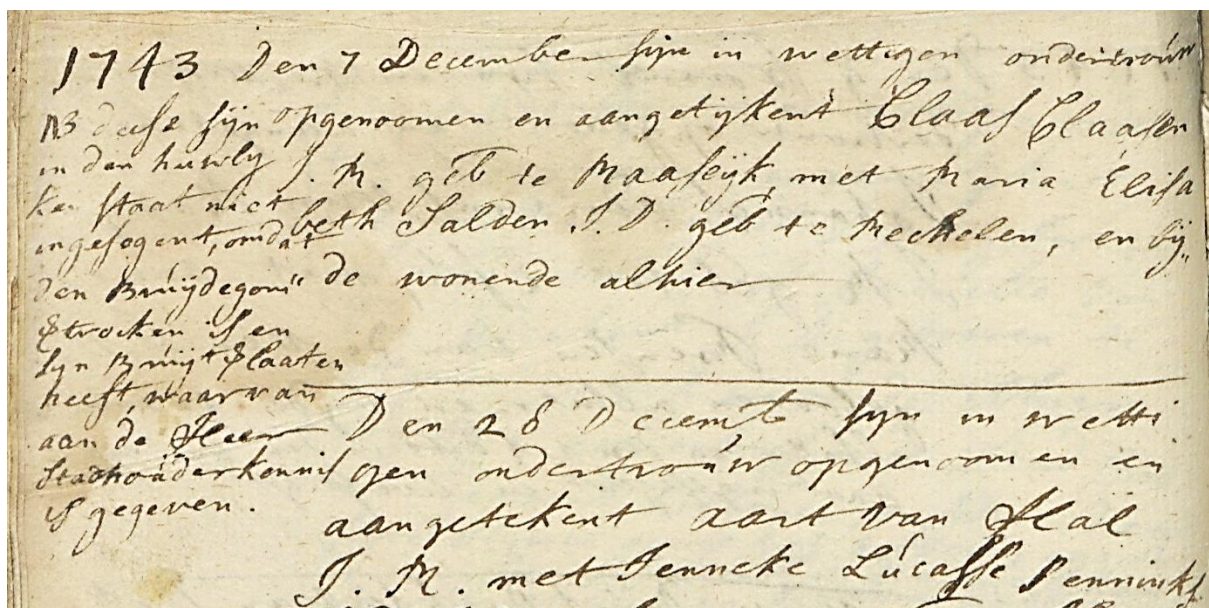 1743 Den 7 December sijn in wettigen ondertrouw
opgenoomen en aangetijkent Claas Claasen
J. M. geb te Maaseijk, met Maria Elisa
beth Salden J. D. geb te Mechelen, en bij„
de wonende alhier
NB deese sijn
in den huwly
ken staat niet
ingesegent, omdat
den Bruijdegom
vertrocken is en
syn Bruijt verlaaten
heeft, waar van
aan de Heer
Stadhouder kennis
is gegeven.
Den 28 Decemb sijn in wetti
gen ondertrouw opgenoomen en
aangetekent aart van Hal
J. M. met Jenneke Lucasse Penninks